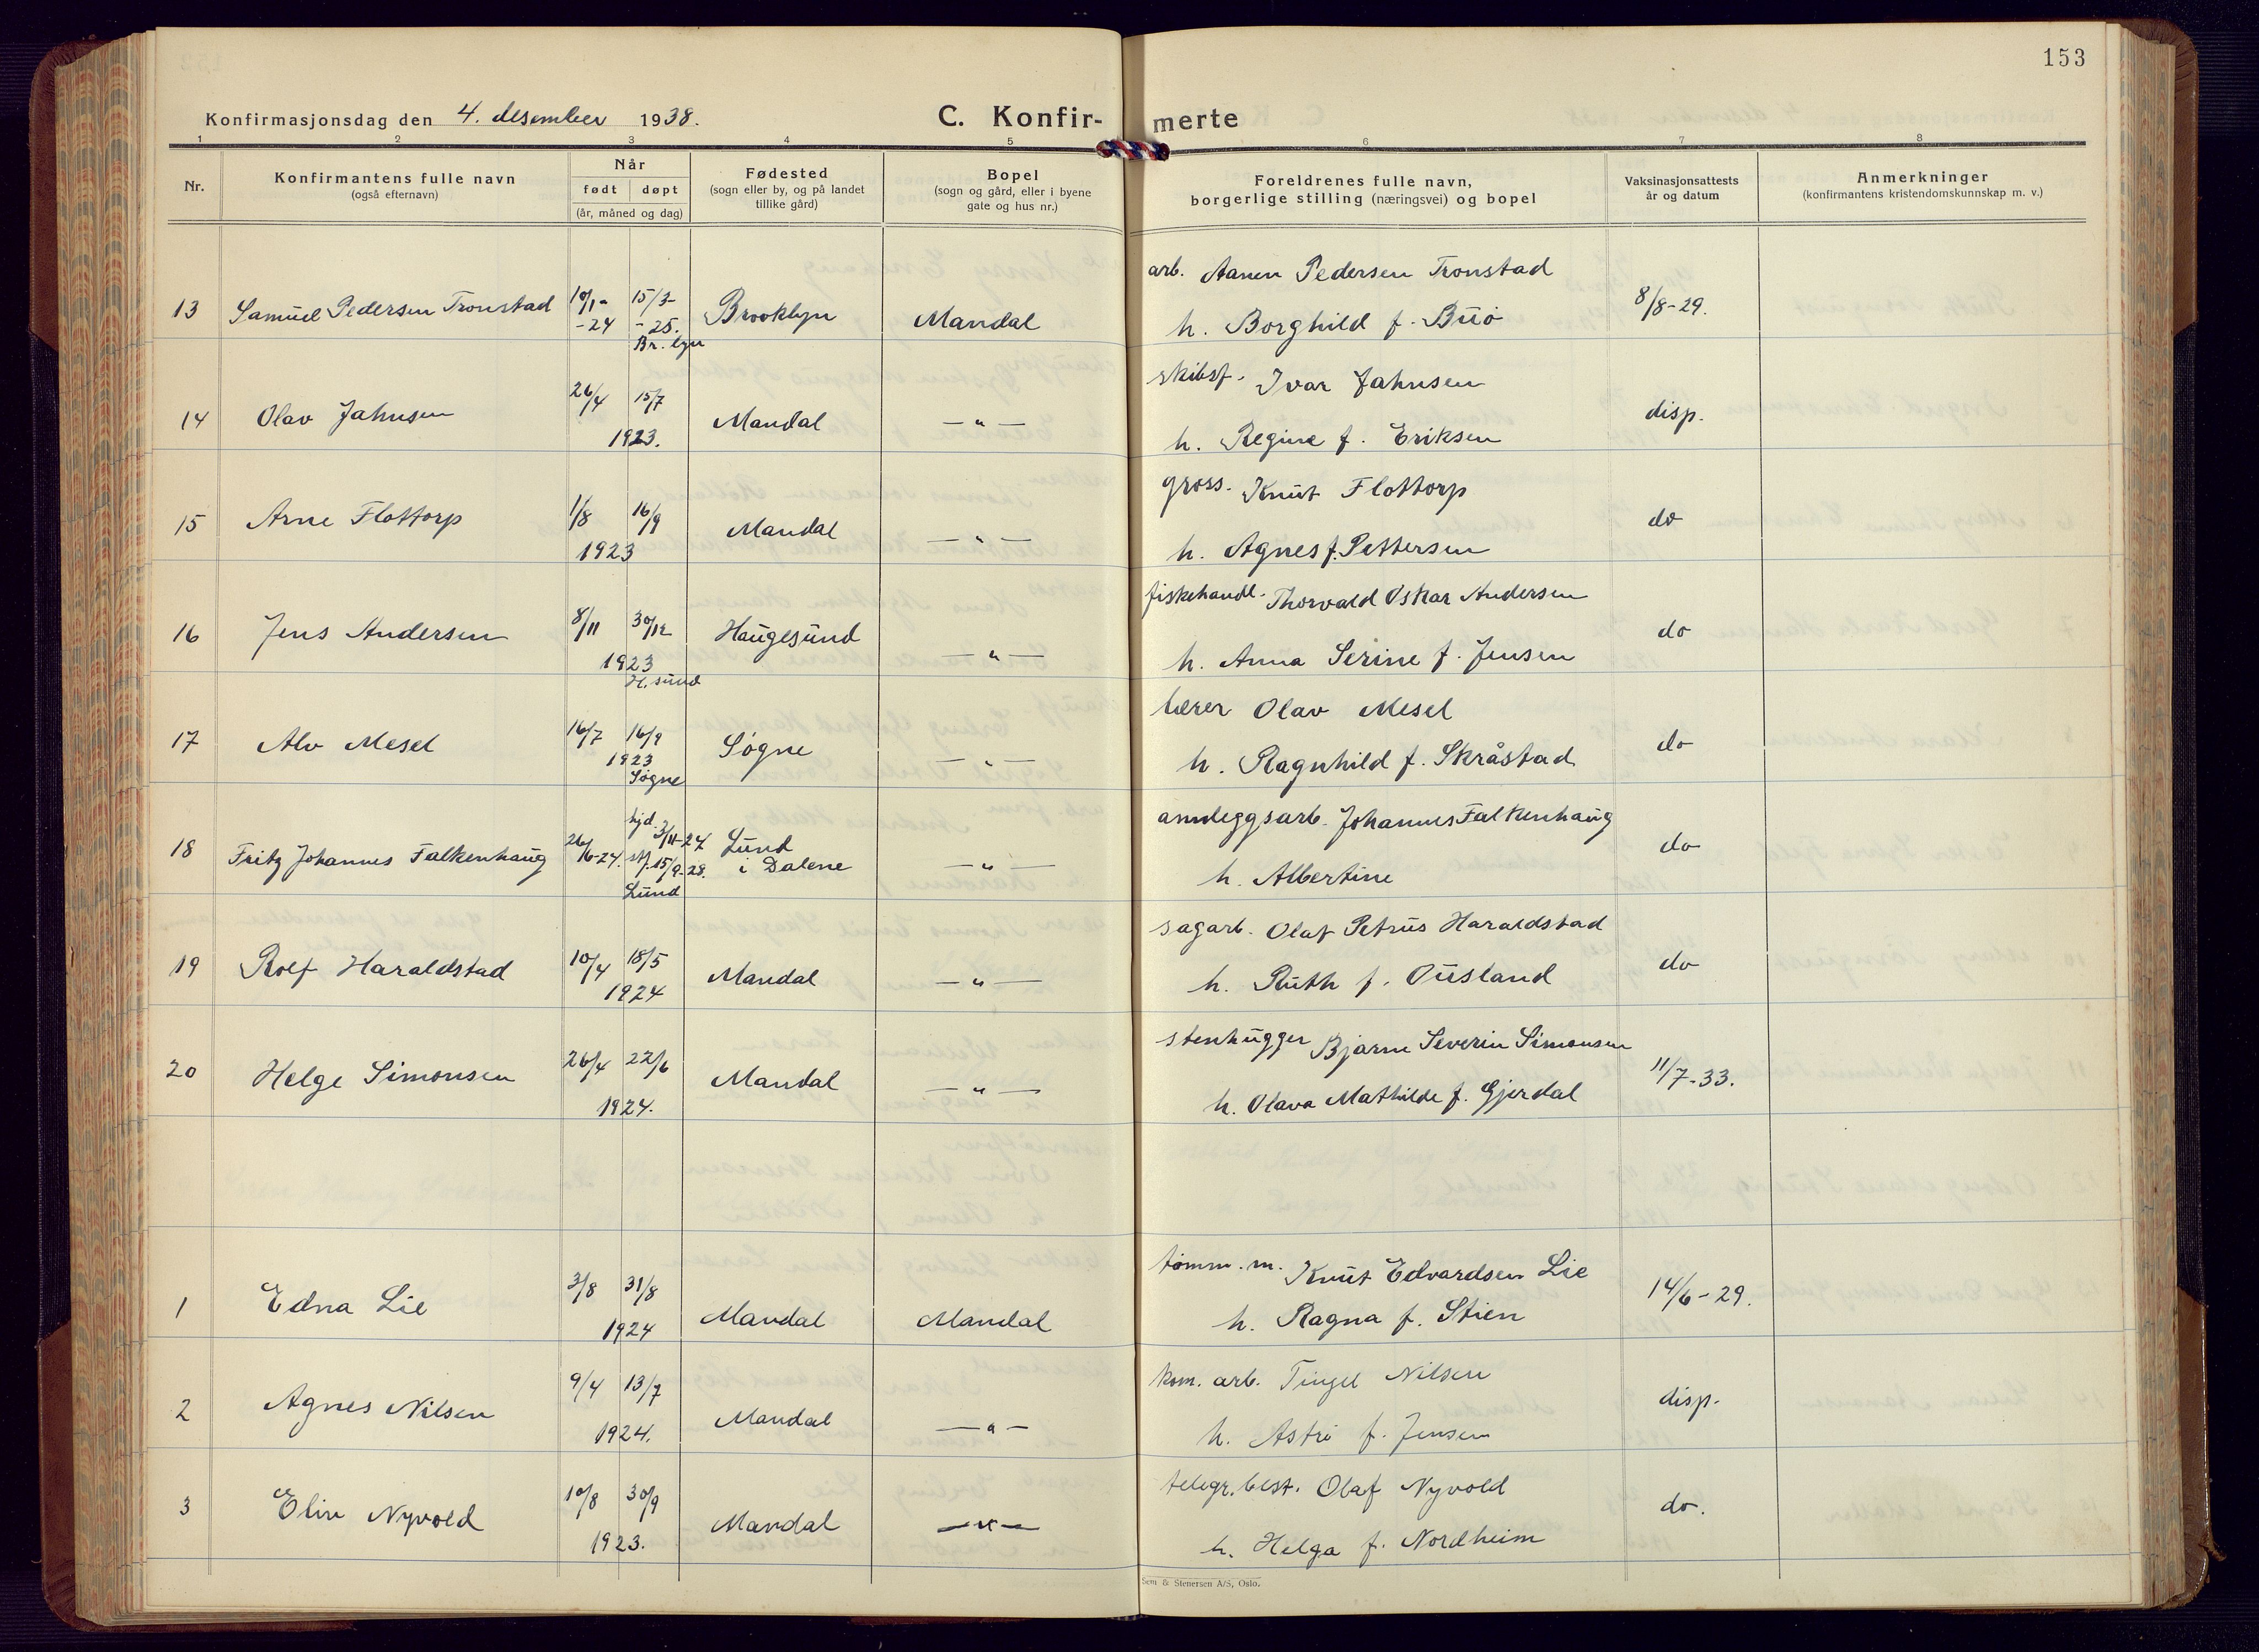 153
Konfirmasjonsdag den 4. desember 1938.
C. Konfir- merte
1 2 3 4 5 6 7 8
Nr.
Konfirmantens fulle navn
(også efternavn)
Når
født døpt
(år, måned og dag)
Fødested
(sogn eller by, og på landet
tillike gård)
Bopel
(sogn og gård, eller i byene
gate og hus nr.)
Foreldrenes fulle navn,
borgerlige stilling (næringsvei) og bopel
Vaksinasjonsattests
år og datum
Anmerkninger
(konfirmantens kristendomskunnskap m. v.)
arb. Aanen Pedersen Tronstad
13 Samuel Pedersen Tronstad 10/1- 15/3- Brooklyn Mandal 8/8-29.
-24 -25.
Br. lyn
h. Borghild f. Buø
skibsf. Ivar Jahnsen
14 Olav Jahnsen 26/4 15/7 Mandal —"— disp.
1923.
h. Regine f. Eriksen
gross. Knut Flottorp
15 Arne Flottorp 1/8 16/9 Mandal —"— do
1923
h. Agnes f. Pettersen
fiskehandl. Thorvald Oskar Andersen
16 Jens Andersen 8/11 30/12 Haugesund —"— do
1923
H.sund
h. Anna Serine f. Jensen
lærer Olav Mesel
17 Alv Mesel 16/7 16/9 Søgne —"— do
1923
Søgne
h. Ragnhild f. Skråstad
anleggsarb. Johannes Falkenhaug
18 Fritz Johannes Falkenhaug 26/6-24. hjd. 3/11-24 Lund i Dalene —"— do
stf. 15/9-28.
Lund
h. Albertine
sagarb. Olaf Petrus Haraldstad
19 Rolf Haraldstad 10/4 18/5 Mandal —"— do
1924
h. Ruth f. Ousland
stenhugger Bjarne Severin Simonsen
20 Helge Simonsen 26/4 22/6 Mandal —"— 11/7-33.
1924.
h. Olava Mathilde f. Gjerdal
tømm. m. Knut Edvardsen Lie
1 Edna Lie 3/8 31/8 Mandal Mandal 14/6-29.
1924
h. Ragna f. Stien
kom. arb. Tingel Nilsen
2 Agnes Nilsen 9/4 13/7 Mandal —"— disp.
1924.
h. Astri f. Jensen
telegr. best. Olaf Nyvold
3 Elin Nyvold 10/8 30/9 Mandal —"— do.
1923.
h. Helga f. Nordheim
Sem & Stenersen A/S, Oslo.